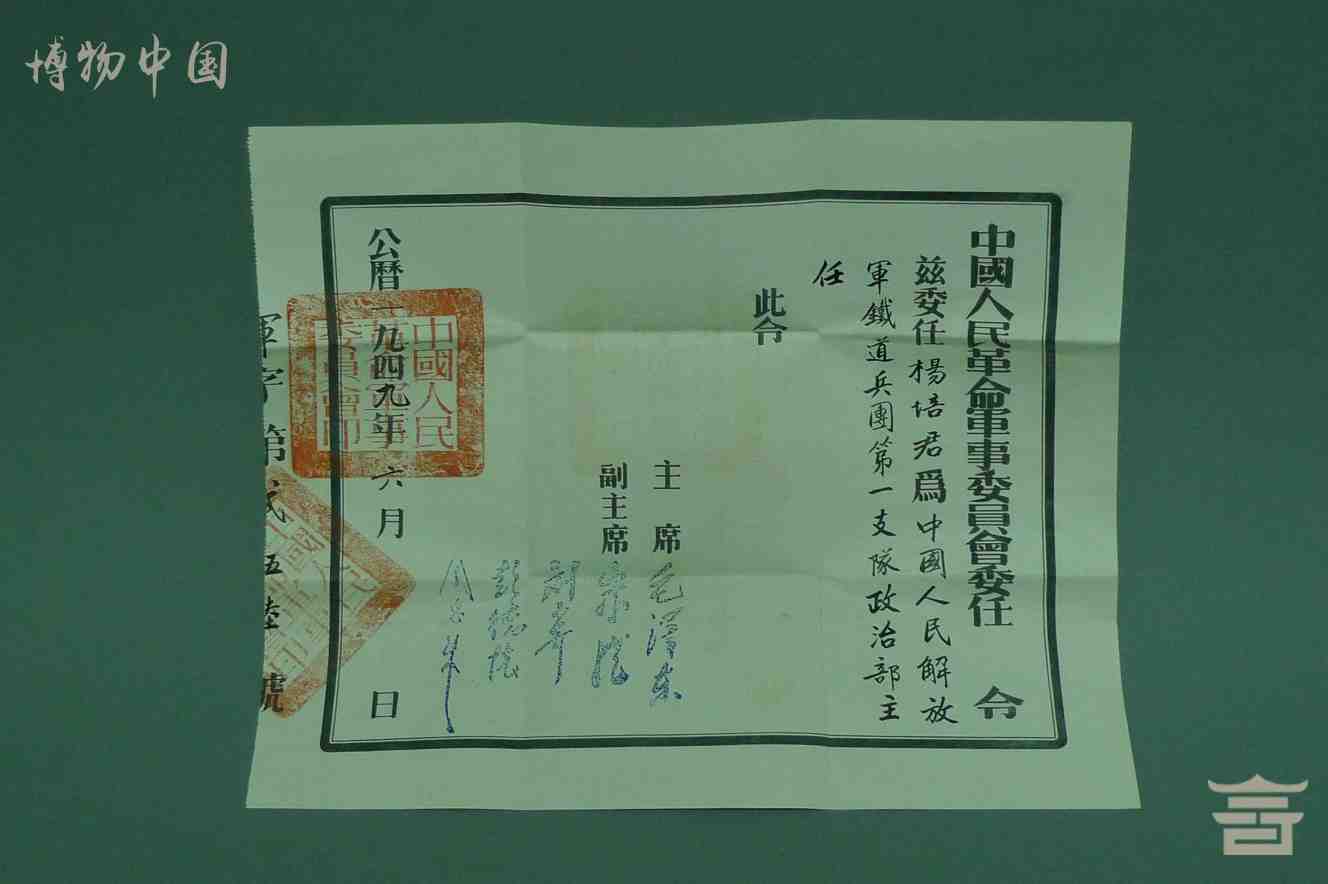 博物中国
中國人民革命軍事委員會委任令
兹委任楊培君爲中國人民解放
軍鐵道兵團第一支隊政治部主
任
此令
主席 毛澤东
副主席 朱德
刘少奇
彭德懷
周恩来
公曆一九四九年六月 日
中國人民革命軍事委員會印
軍字第弍五陸號